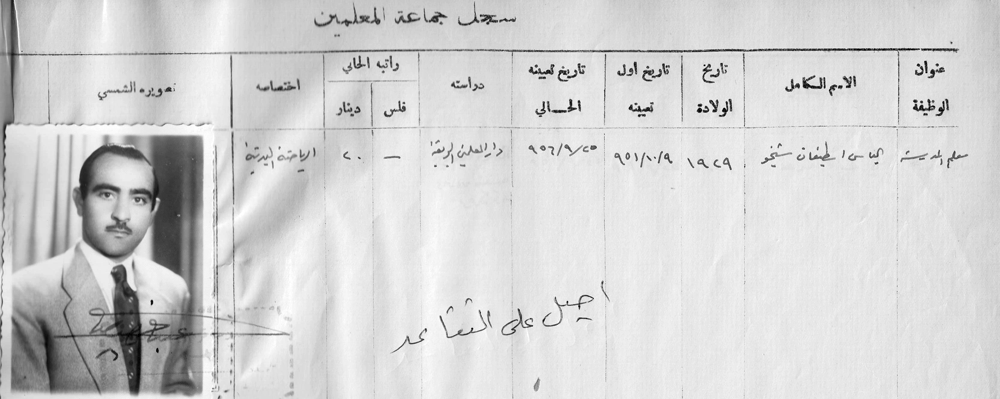 سجل جماعة المعلمين
عنوان الوظيفة
الاسم الكامل
تاريخ الولادة
تاريخ اول تعيينه
تاريخ تعيينه الحالي
دراسته
راتبه الحالي
فلس
دينار
اختصاصه
تصويره الشمسي
معلم المدرسة
الياس اسطيفان شيخو
١٩٢٩
٩٥١/١٠/٩
٩٥٦/٩/٢٥
دار المعلمين الريفية
—
٢٠
الرياضة البدنية
احيل على التقاعد